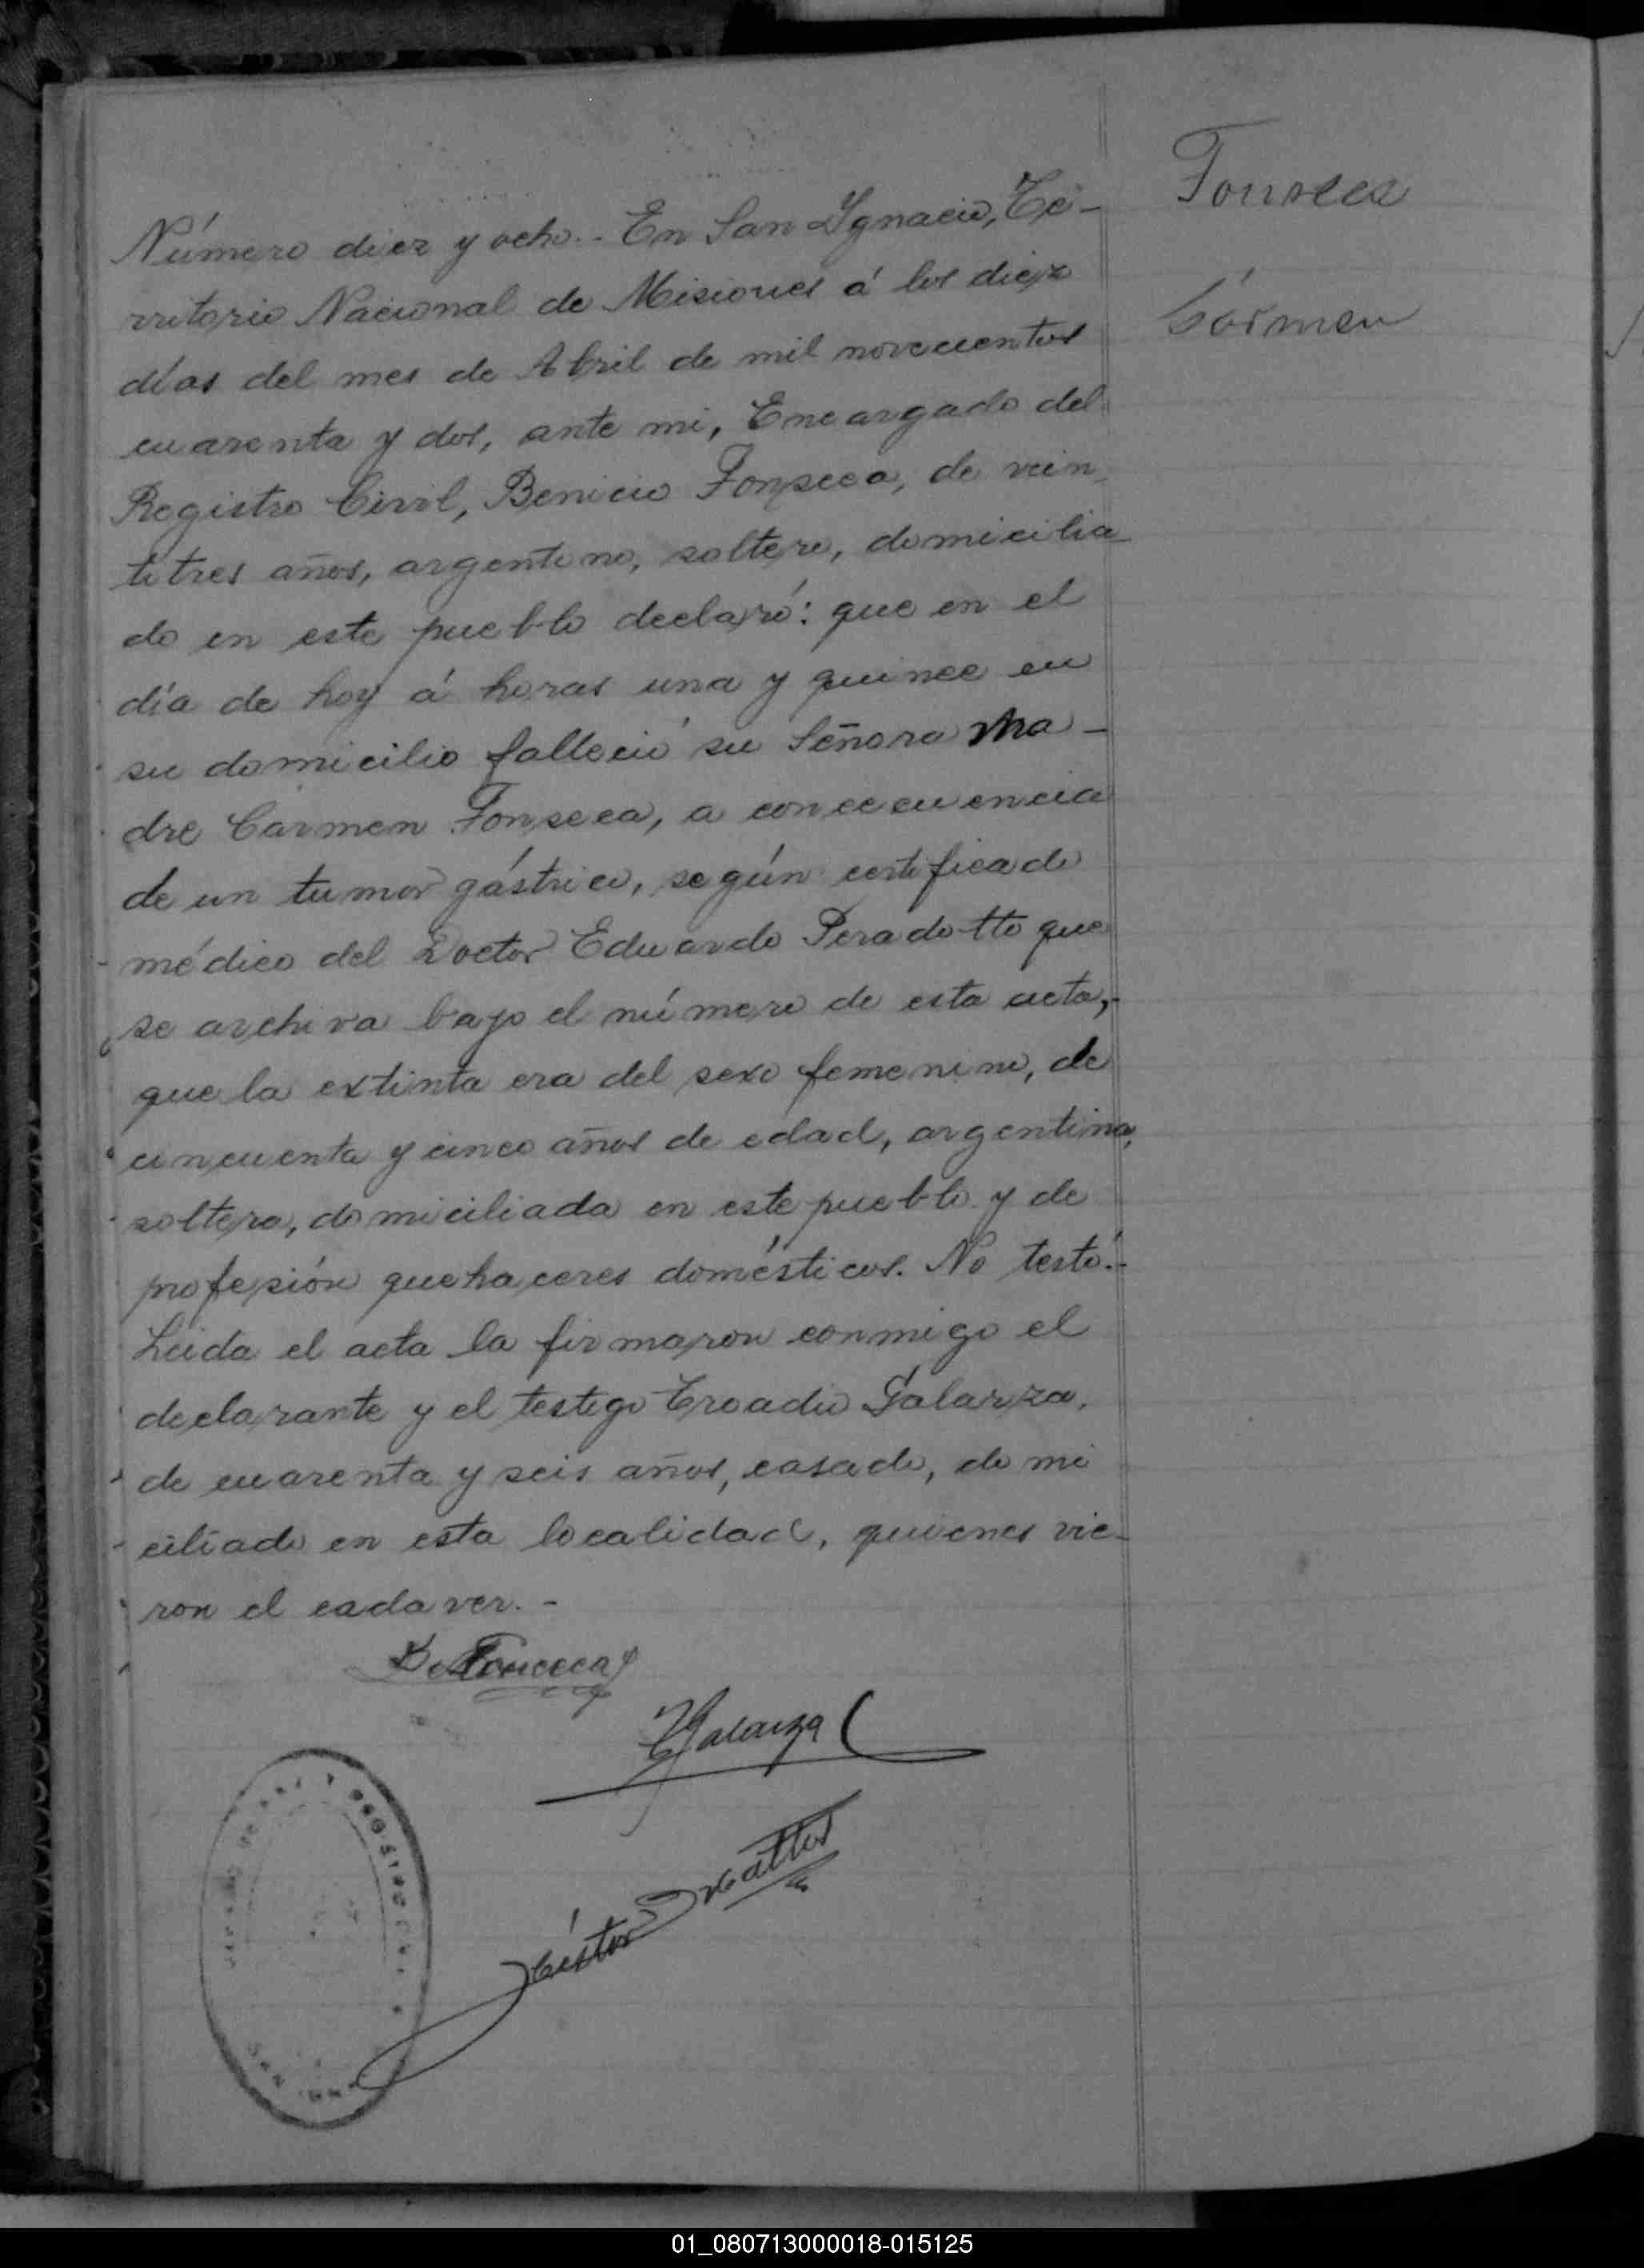 Fonseca
Cármen
Número diez y ocho.- En San Ignacio, Te-
rritorio Nacional de Misiones á los diez
días del mes de Abril de mil novecientos
cuarenta y dos, ante mi, Encargado del
Registro Civil, Benicio Fonseca, de vein
titres años, argentino, soltero, domicilia
do en este pueblo declaró: que en el
día de hoy á horas una y quince en
su domicilio falleció su Señora Ma-
dre Carmen Fonseca, a concecuencia
de un tumor gástrico, según certificado
médico del Doctor Eduardo Peradotto que
se archiva bajo el número de esta acta,-
que la extinta era del sexo femenino, de
cincuenta y cinco años de edad, argentina,
soltera, domiciliada en este pueblo y de
profesión quehaceres domésticos. No testó.-
Leida el acta la firmaron conmigo el
declarante y el testigo Eroadio Galarza,
de cuarenta y seis años, casado, domi
ciliado en esta localidad, quienes vie-
ron el cadaver.-
B. Fonceca
E Galarza
Néstor Mattos
REGISTRO
SAN
01_080713000018-015125